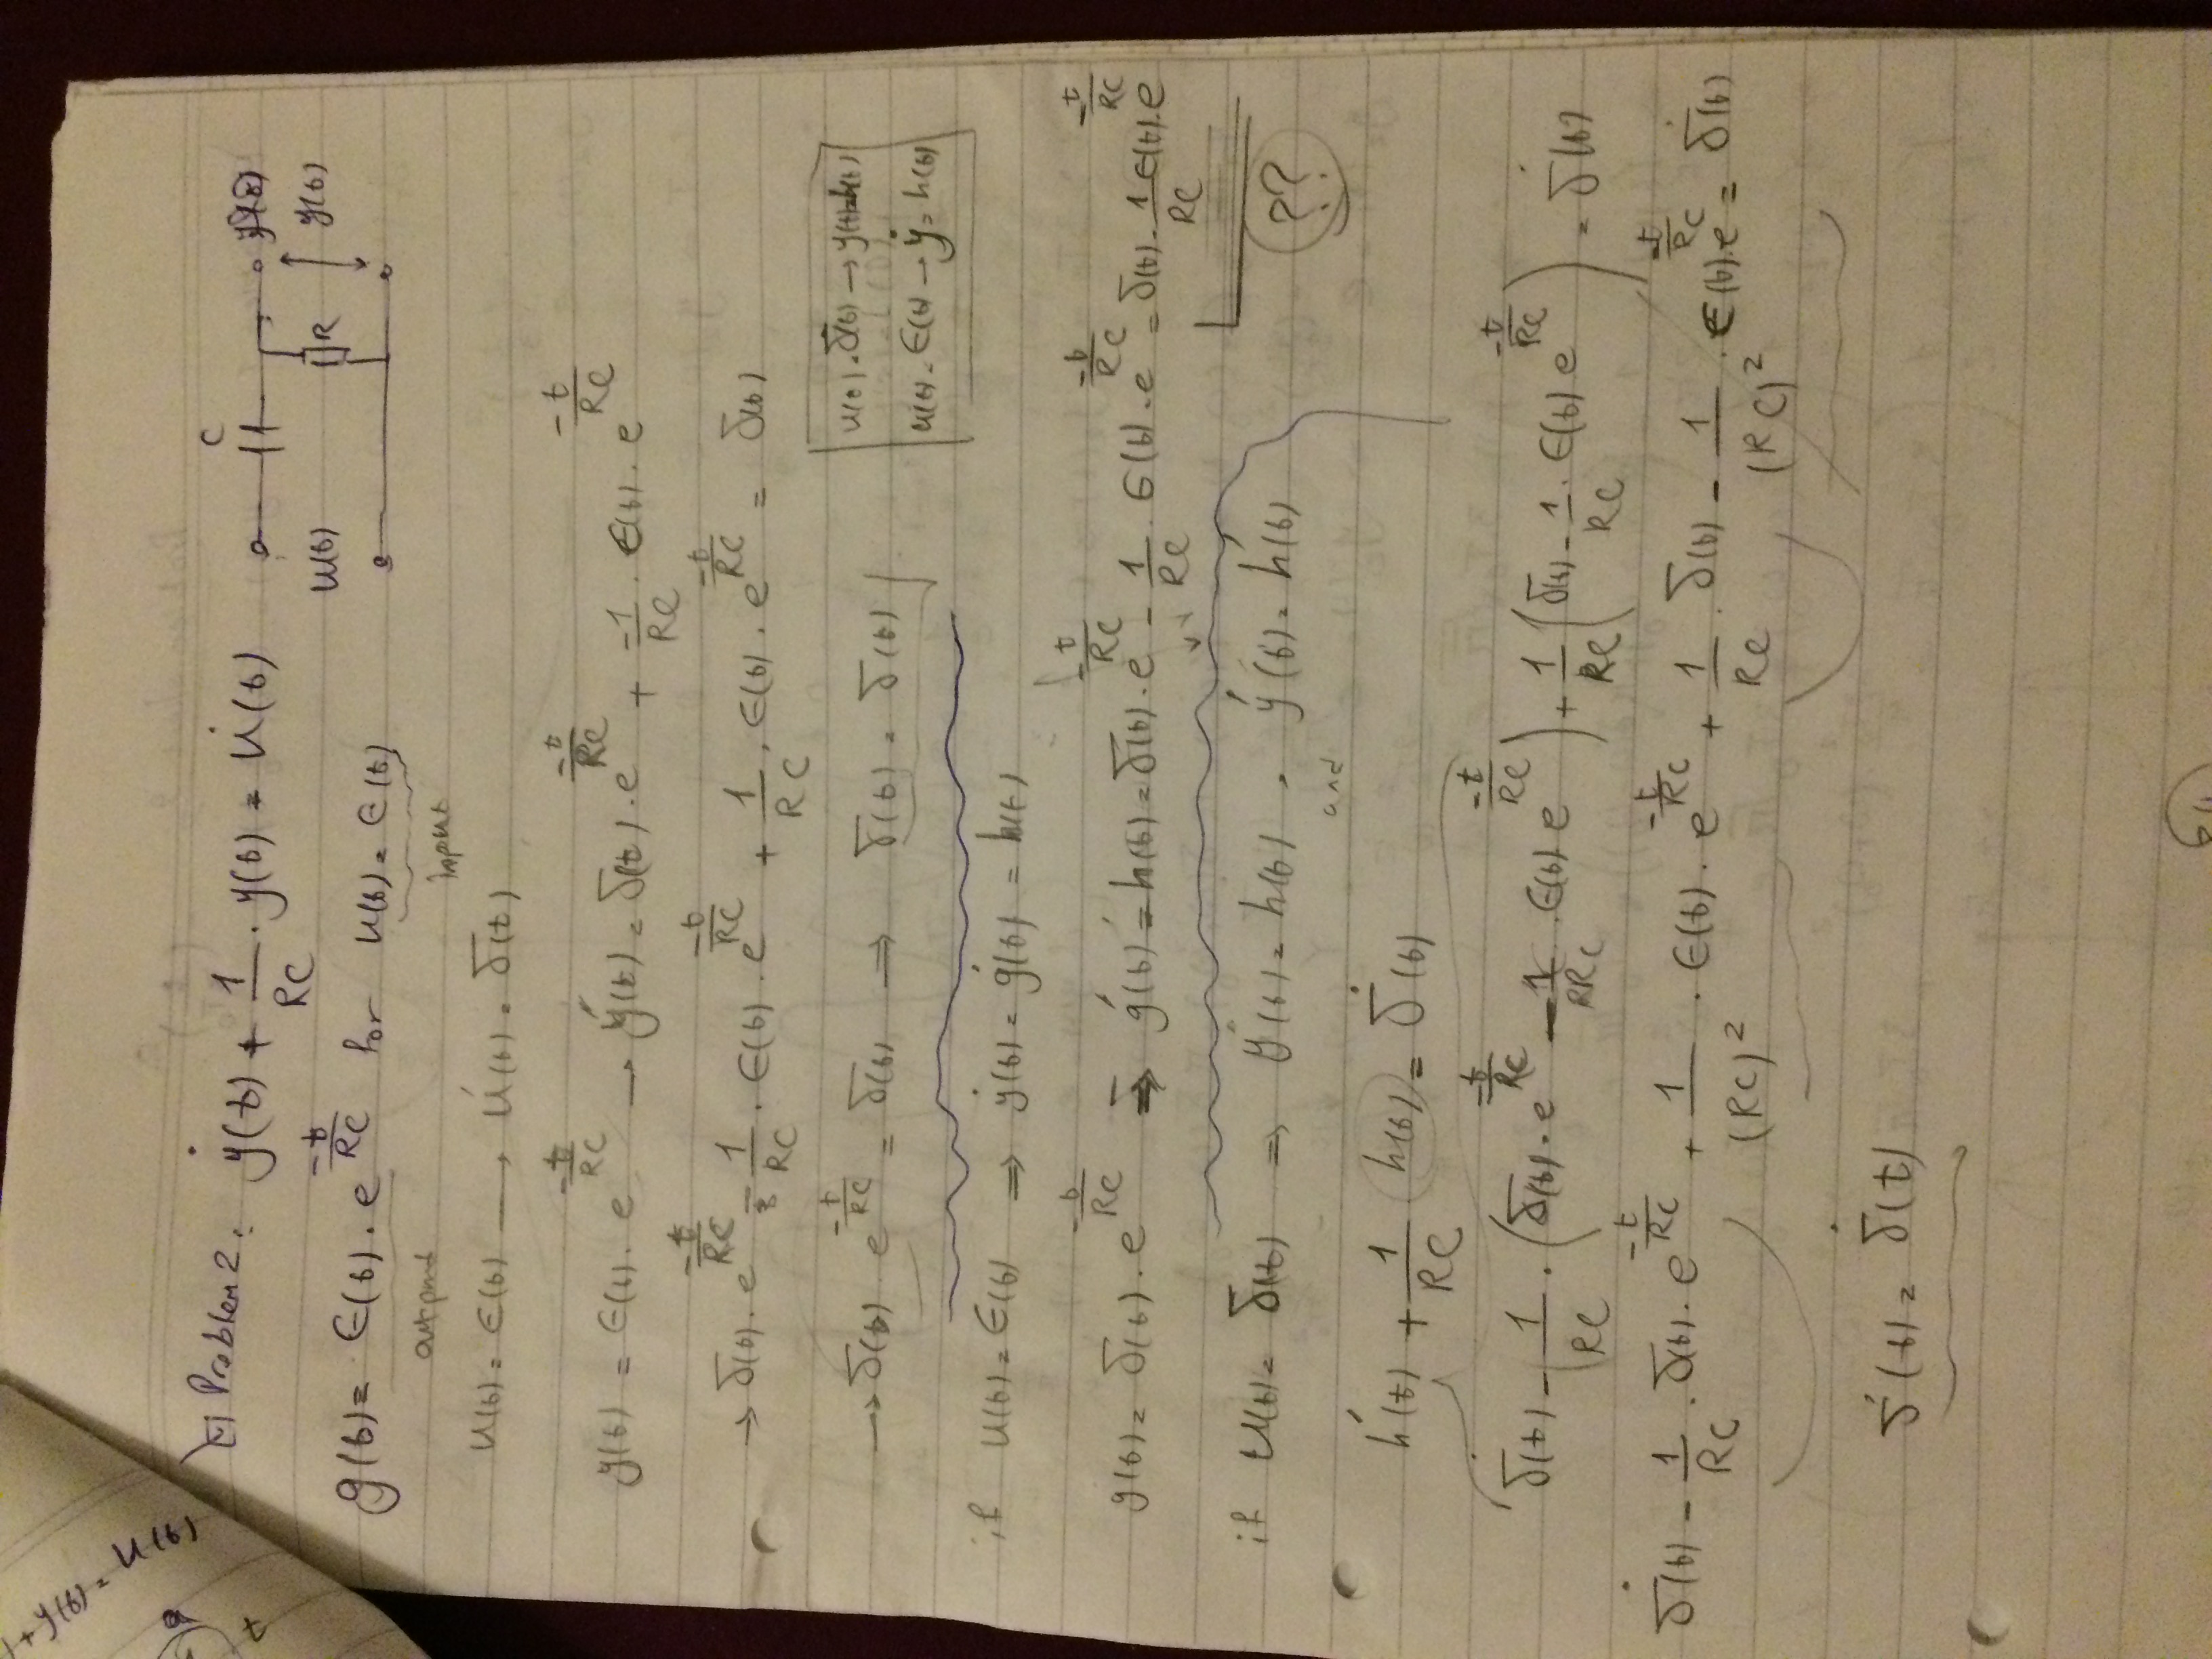 + y(t) = u(t)
t
Problem 2: ẏ(t) + 1/RC · y(t) = u̇(t)
C
y(t)
u(t)
R
y(t)
g(t) = ϵ(t) · e^(-t/RC) for u(t) = ϵ(t)
output
input
u(t) = ϵ(t) → u̇(t) = δ(t)
y(t) = ϵ(t) · e^(-t/RC) → ẏ(t) = δ(t) · e^(-t/RC) + -1/RC · ϵ(t) · e^(-t/RC)
→ δ(t) · e^(-t/RC) - 1/RC · ϵ(t) · e^(-t/RC) + 1/RC · ϵ(t) · e^(-t/RC) = δ(t)
→ δ(t) · e^(-t/RC) = δ(t) ⇒ δ(t) = δ(t)
u(t) = δ(t) → y(t) = h(t)
u(t) = ϵ(t) → ẏ = h(t)
if u(t) = ϵ(t) ⇒ ẏ(t) = ġ(t) = h(t)
g(t) = δ(t) · e^(-t/RC) ⇒ ġ(t) = h(t) = δ(t) · e^(-t/RC) - 1/RC · ϵ(t) · e^(-t/RC) = δ(t) - 1/RC ϵ(t) · e^(-t/RC)
??
if u(t) = δ(t) ⇒ y(t) = h(t) and ẏ(t) = ḣ(t)
ḣ(t) + 1/RC h(t) = δ̇(t)
δ̇(t) - 1/RC · (δ(t) · e^(-t/RC) - 1/RC · ϵ(t) e^(-t/RC)) + 1/RC (δ(t) - 1/RC · ϵ(t) e^(-t/RC)) = δ̇(t)
δ̇(t) - 1/RC · δ(t) · e^(-t/RC) + 1/(RC)² · ϵ(t) · e^(-t/RC) + 1/RC · δ(t) - 1/(RC)² · ϵ(t) · e^(-t/RC) = δ̇(t)
δ̇(t) = δ̇(t)